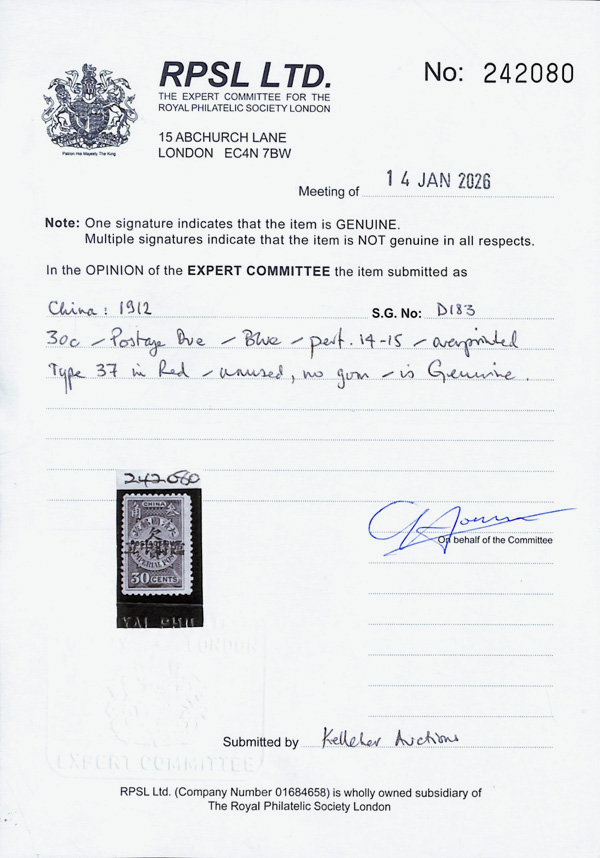 RPSL LTD.
THE EXPERT COMMITTEE FOR THE
ROYAL PHILATELIC SOCIETY LONDON
No: 242080
Patron His Majesty The King
15 ABCHURCH LANE
LONDON EC4N 7BW
Meeting of 14 JAN 2026
Note: One signature indicates that the item is GENUINE.
Multiple signatures indicate that the item is NOT genuine in all respects.
In the OPINION of the EXPERT COMMITTEE the item submitted as
China: 1912 S.G. No: D183
30c - Postage Due - Blue - perf. 14-15 - overprinted
Type 37 in Red - unused, no gum - is Genuine.
242080
CHINA
欠
IMPERIAL POST
30 CENTS
On behalf of the Committee
LONDON
EXPERT COMMITTEE
Submitted by Kelleher Auctions
RPSL Ltd. (Company Number 01684658) is wholly owned subsidiary of
The Royal Philatelic Society London